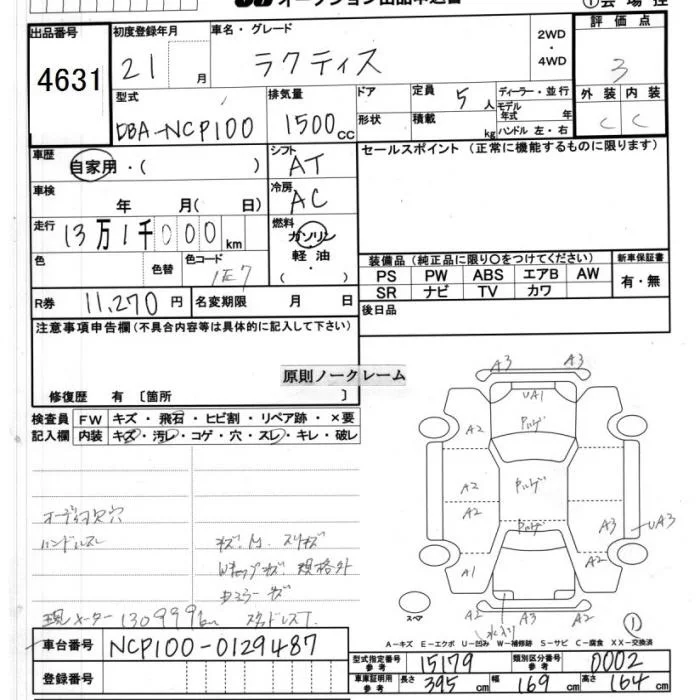 オークション出品申込書 ①会場控
出品番号 4631
初度登録年月 21 月
車名・グレード ラクティス
2WD・4WD
評価点 3
型式 DBA-NCP100
排気量 1500cc
ドア
形状
定員 5人
積載 kg
ディーラー・並行
モデル年式 年
ハンドル 左・右
外装 内装
C C
車歴 自家用・( )
シフト AT
セールスポイント (正常に機能するものに限ります)
車検 年 月( 日)
冷房 AC
走行 13万1千000km
燃料 ガソリン
軽油
・
( )
色 色替 色コード 1E7
装備品 (純正品に限り○をつけてください) 新車保証書
PS PW ABS エアB AW 有・無
SR ナビ TV カワ
R券 11,270円 名変期限 月 日
後日品
注意事項申告欄 (不具合内容等は具体的に記入して下さい)
原則ノークレーム
修復歴 有 〔箇所 〕
検査員 FW キズ・飛石・ヒビ割・リペア跡・×要
記入欄 内装 キズ・汚レ・コゲ・穴・スレ・キレ・破レ
A3 A3
UA1
A2 A2
A2
A2
A3 UA3
A1 A2
A2 A3 A2
スペア
①
ハンドルスレ
現メーター130999km スタッドレスT
A-キズ E-エクボ U-凹み W-補修跡 S-サビ C-腐食 XX-交換済
車台番号 NCP100-0129487
登録番号
型式指定番号 参考 15179 類別区分番号 参考 0002
車庫証明用 参考 長さ 395cm 幅 169cm 高さ 164cm